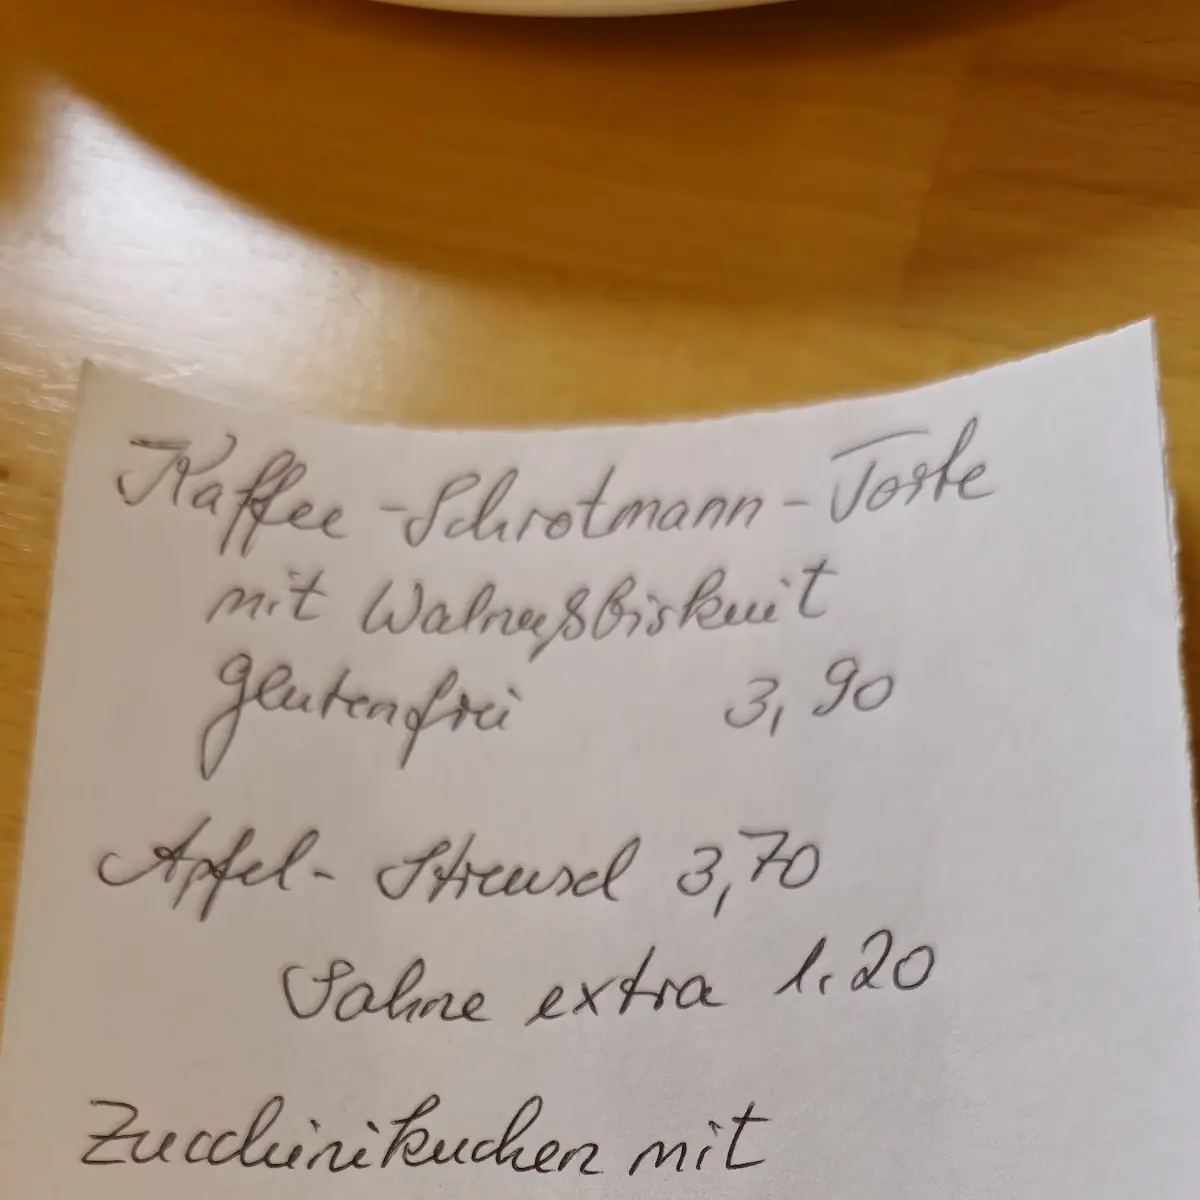 Kaffee-Schrotmann-Torte
mit Walnußbiskuit
glutenfrei 3,90
Apfel-Streusel 3,70
Sahne extra 1.20
Zucchinikuchen mit